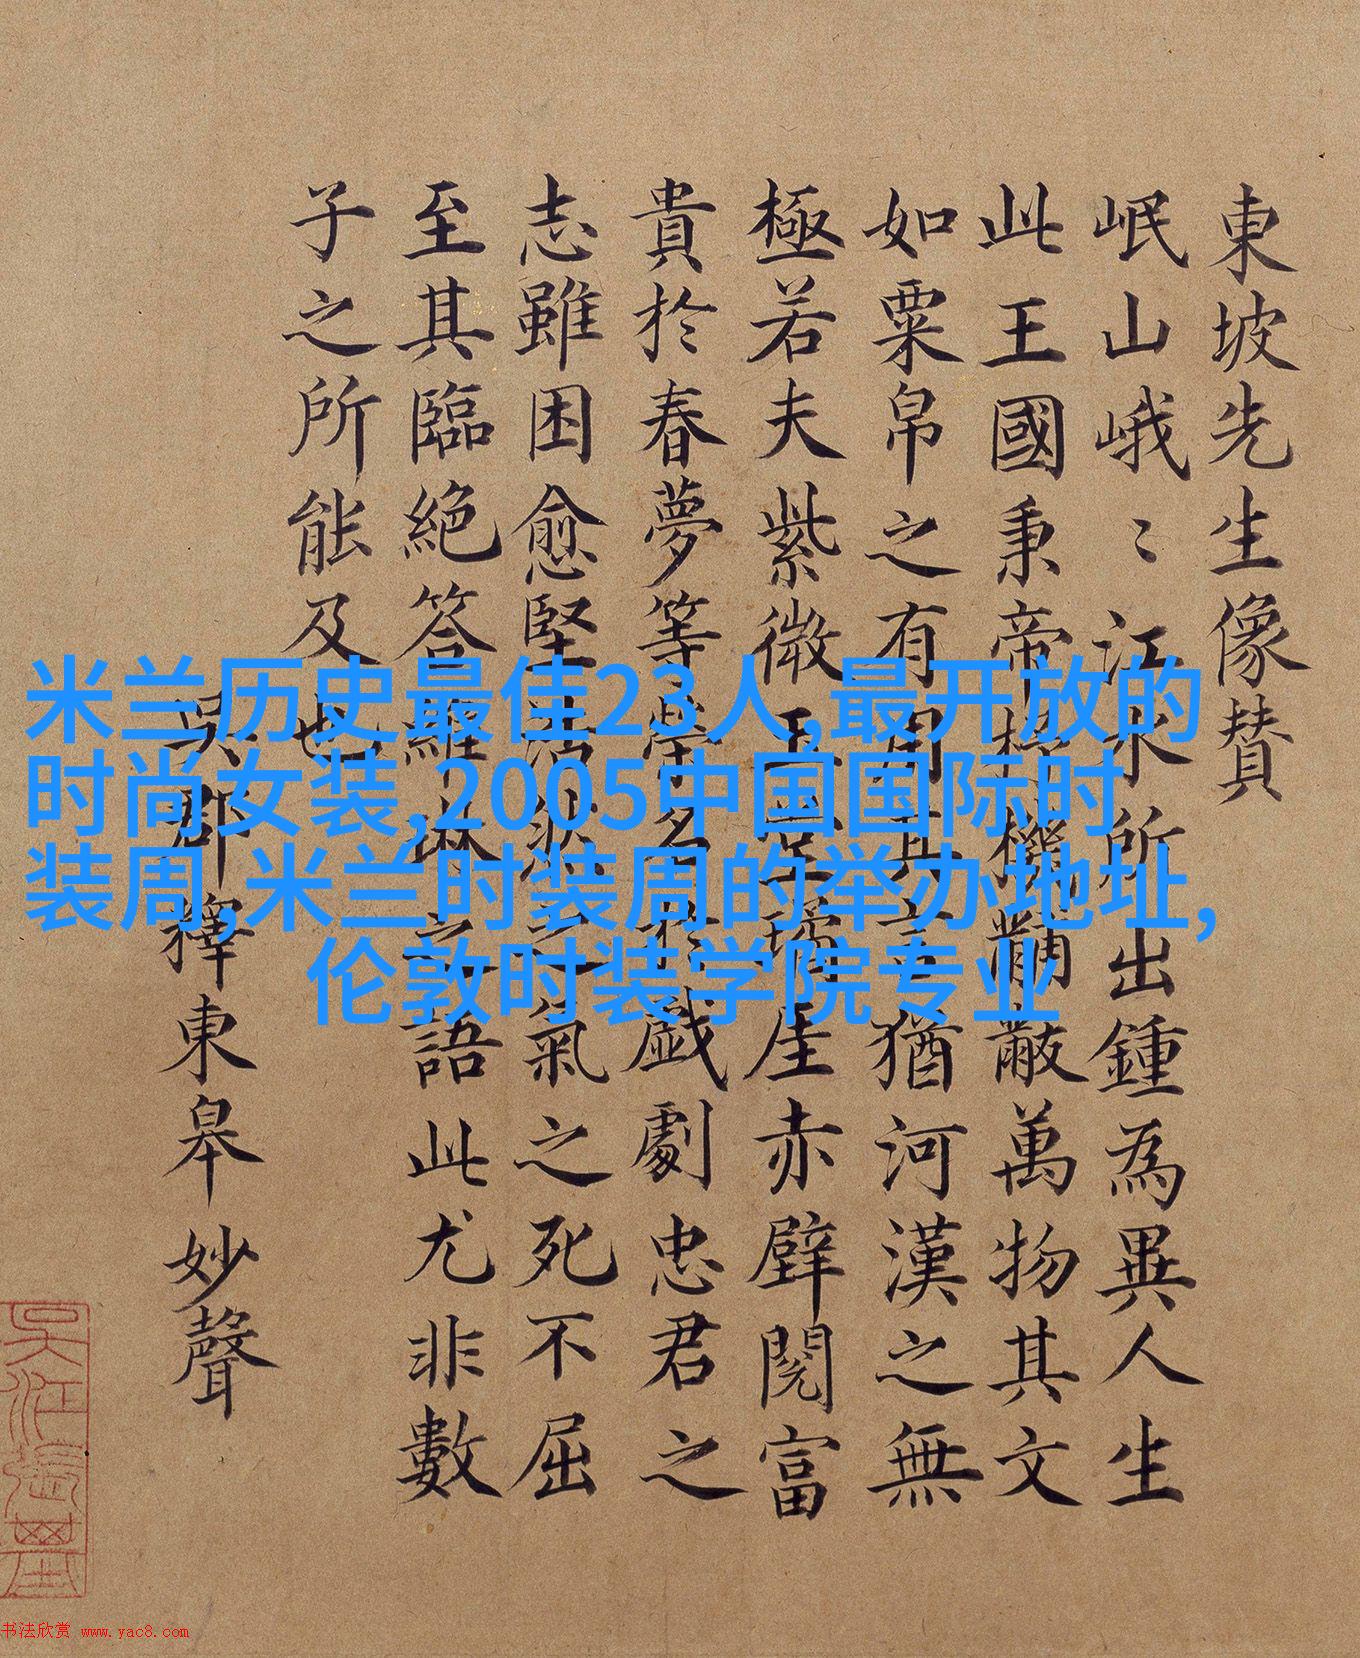 東坡先生像贊
岷山峨〻江水所出鍾為異人生
此王國秉帝杼機黼黻萬物其文
如粟帛之有用其言猶河漢之無
極若夫紫微玉堂瓊崖赤壁閱富
貴於春夢等榮名於戲劇忠君之
志雖困愈堅浩然之氣之死不屈
至其臨絕答維琳之語此尤非數
子之所能及也
吳郡釋東皋妙聲
米兰历史最佳23人,最开放的
时尚女装,2005中国国际时
装周,米兰时装周的举办地址,
伦敦时装学院专业
书法欣赏 www.yac8.com